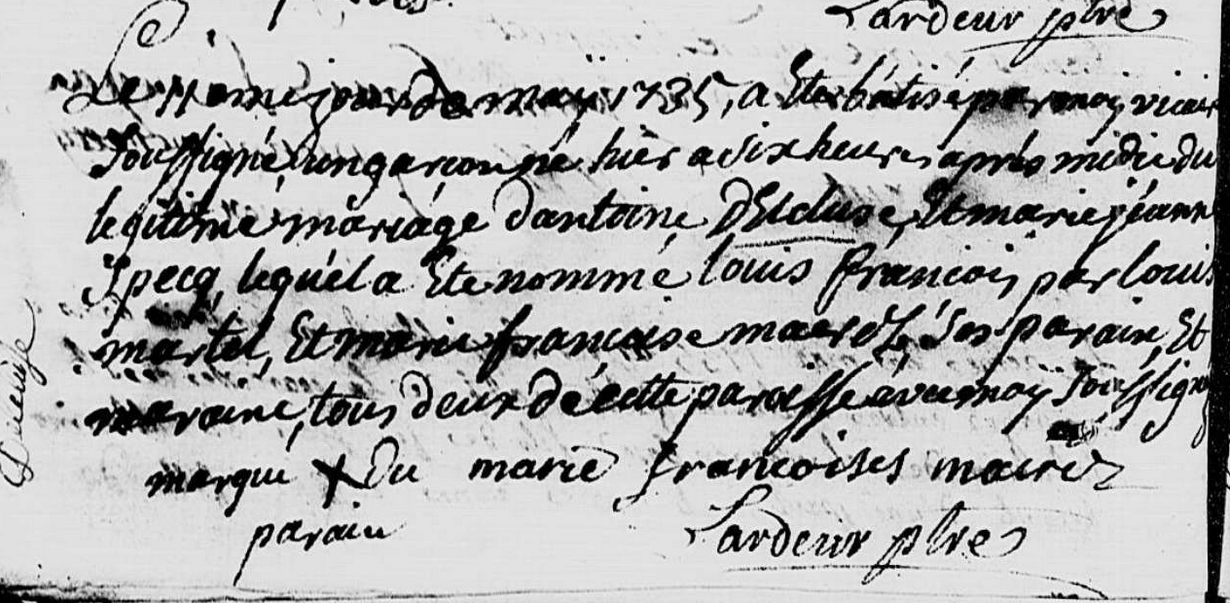 Lardeur ptre
Le 11eme jour de maÿ 1735, a Ete bâtisé par moy vicair
soussigné un garcon né hier a six heures aprés midie du
legitime mariage d'antoine DElcluse, Et marie jéanne
Specq, lequél a Ete nommé louis francois par louis
martel, Et marie francoise macréz, ses parain, Et
maraine, tous deux dé cette paroisse avec moÿ soussigné
marque + du marie francoises macréz
parain Lardeur ptre